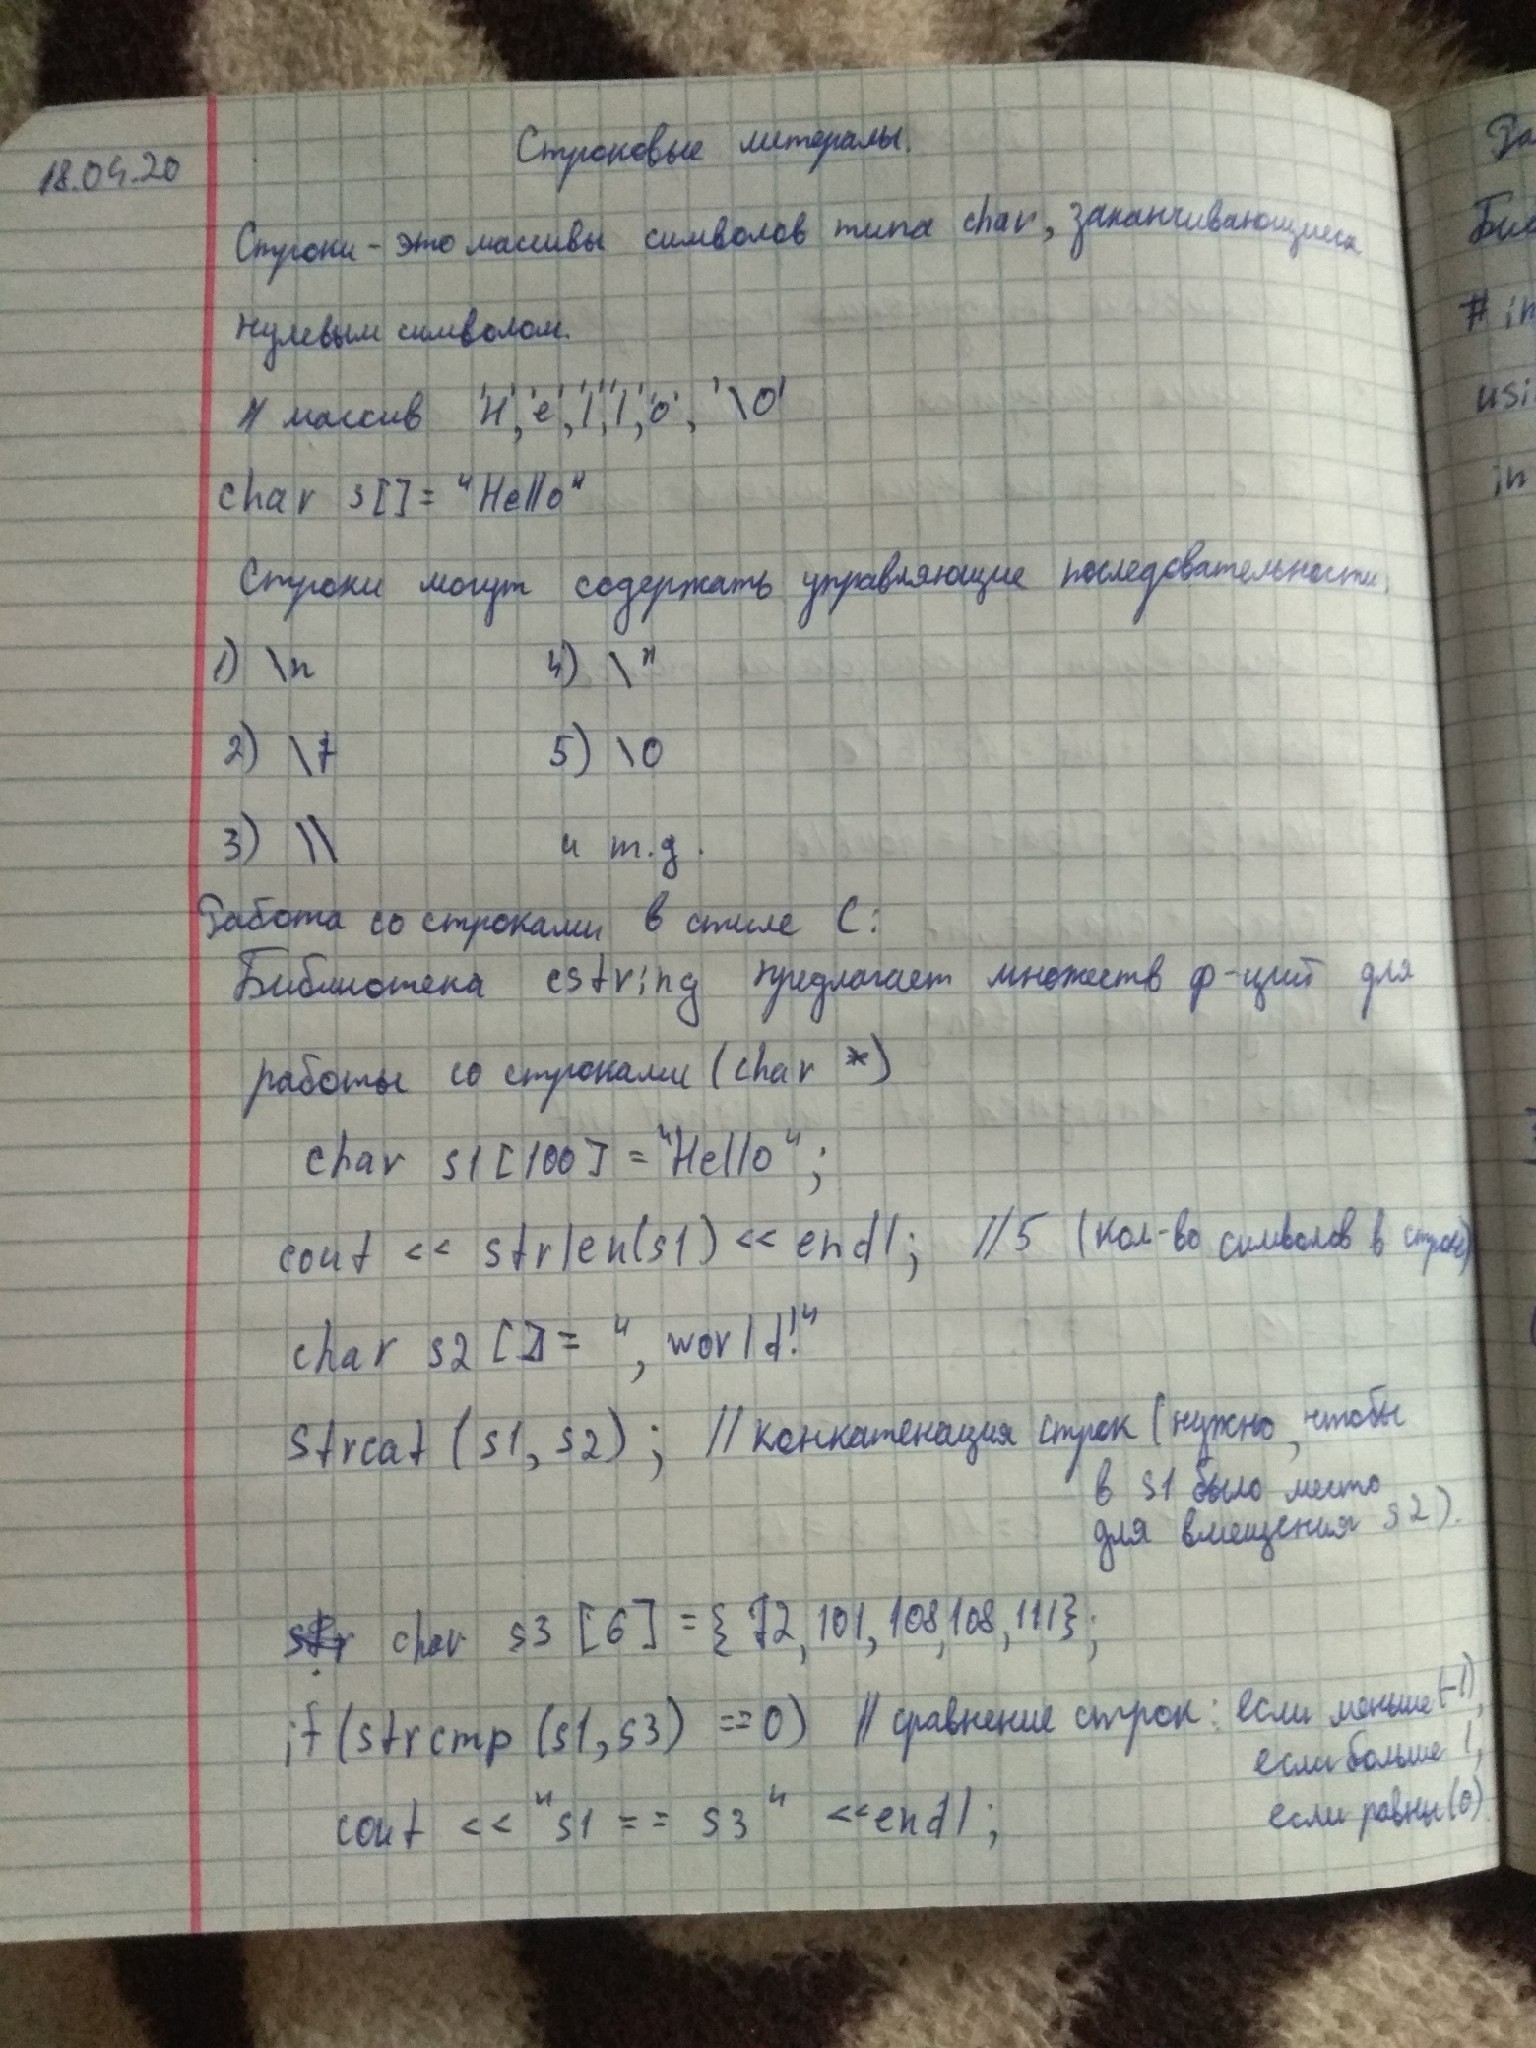 18.04.20
Строковые литералы.
Строки - это массивы символов типа char, заканчивающиеся
нулевым символом.
// массив 'H', 'e', 'l', 'l', 'o', '\0'
char s[] = "Hello"
Строки могут содержать управляющие последовательности.
1) \n 4) \"
2) \t 5) \0
3) \\ и т.д.
Работа со строками в стиле C:
Библиотека cstring предлагает множеств ф-ций для
работы со строками (char *)
char s1 [100] = "Hello";
cout << strlen(s1) << endl; //5 (кол-во символов в строке)
char s2 [] = ", world!"
strcat (s1, s2); // конкатенация строк (нужно, чтобы
в s1 было место
для вмещения s2).
char s3 [6] = {72, 101, 108, 108, 111};
if (strcmp (s1, s3) == 0) // сравнение строк: если меньше (-1),
если больше 1,
cout << "s1 == s3" << endl; если равны (0)
Би
# in
usi
in